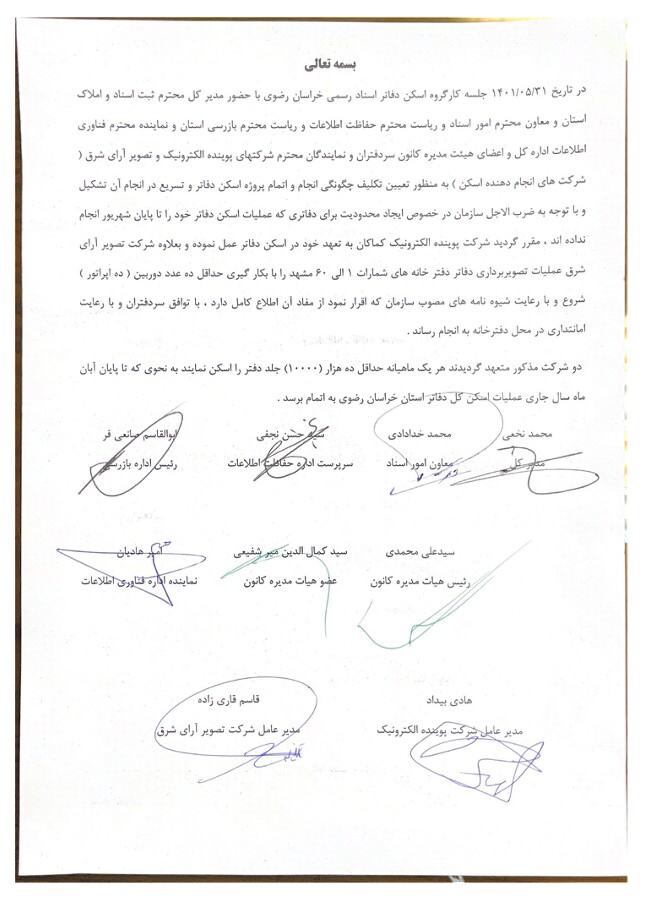 بسمه تعالی
در تاریخ ۱۴۰۱/۰۵/۳۱ جلسه کارگروه اسکن دفاتر اسناد رسمی خراسان رضوی با حضور مدیر کل محترم ثبت اسناد و املاک
استان و معاون محترم امور اسناد و ریاست محترم حفاظت اطلاعات و ریاست محترم بازرسی استان و نماینده محترم فناوری
اطلاعات اداره کل و اعضای هیئت مدیره کانون سردفتران و نمایندگان محترم شرکتهای پوینده الکترونیک و تصویر آرای شرق (
شرکت های انجام دهنده اسکن ) به منظور تعیین تکلیف چگونگی انجام و اتمام پروژه اسکن دفاتر و تسریع در انجام آن تشکیل
و با توجه به ضرب الاجل سازمان در خصوص ایجاد محدودیت برای دفاتری که عملیات اسکن دفاتر خود را تا پایان شهریور انجام
نداده اند ، مقرر گردید شرکت پوینده الکترونیک کماکان به تعهد خود در اسکن دفاتر عمل نموده و بعلاوه شرکت تصویر آرای
شرق عملیات تصویربرداری دفاتر دفتر خانه های شمارات ۱ الی ۶۰ مشهد را با بکار گیری حداقل ده عدد دوربین ( ده اپراتور )
شروع و با رعایت شیوه نامه های مصوب سازمان که اقرار نمود از مفاد آن اطلاع کامل دارد ، با توافق سردفتران و با رعایت
امانتداری در محل دفترخانه به انجام رساند .
دو شرکت مذکور متعهد گردیدند هر یک ماهیانه حداقل ده هزار (۱۰۰۰۰) جلد دفتر را اسکن نمایند به نحوی که تا پایان آبان
ماه سال جاری عملیات اسکن کل دفاتر استان خراسان رضوی به اتمام برسد .
محمد نخعی محمد خدادادی سید حسن نجفی ابوالقاسم صانعی فر
مدیر کل معاون امور اسناد سرپرست اداره حفاظت اطلاعات رئیس اداره بازرسی
سیدعلی محمدی سید کمال الدین میر شفیعی امیر هادیان
رئیس هیات مدیره کانون عضو هیات مدیره کانون نماینده اداره فناوری اطلاعات
هادی بیداد قاسم قاری زاده
مدیر عامل شرکت پوینده الکترونیک مدیر عامل شرکت تصویر آرای شرق